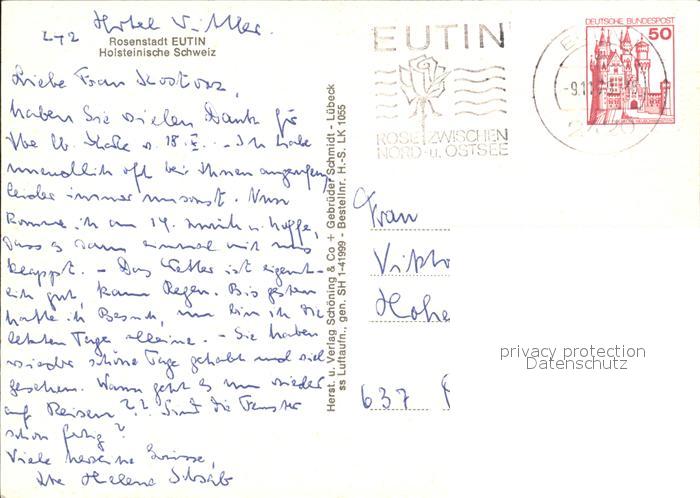 Hotel
Rosenstadt EUTIN
Holsteinische Schweiz
Liebe Frau
haben Sie vielen Dank für
Ihre lb. Karte v. 18. - Ich habe
unendlich oft bei Ihnen angerufen,
leider immer umsonst. Nun
komme ich am 14. zurück u. hoffe,
dass es dann einmal mit uns
klappt. - Das Wetter ist eigent-
lich gut, kaum Regen. Bis gestern
hatte ich Besuch, nun bin ich die
letzten Tage alleine. - Sie haben
wieder schöne Tage gehabt und viel
gesehen. Wann geht es nun wieder
auf Reisen?? Sind die Fenster
schon fertig?
Viele herzliche Grüsse,
Ihre Helene
Herst. u. Verlag Schöning & Co + Gebrüder Schmidt - Lübeck
ss Luftaufn., gen. SH 1-41999 - Bestellnr. H.-S. LK 1055
EUTIN
ROSE ZWISCHEN
NORD- u. OSTSEE
DEUTSCHE BUNDESPOST
50
Frau
Vikto
Hohe
637
privacy protection
Datenschutz